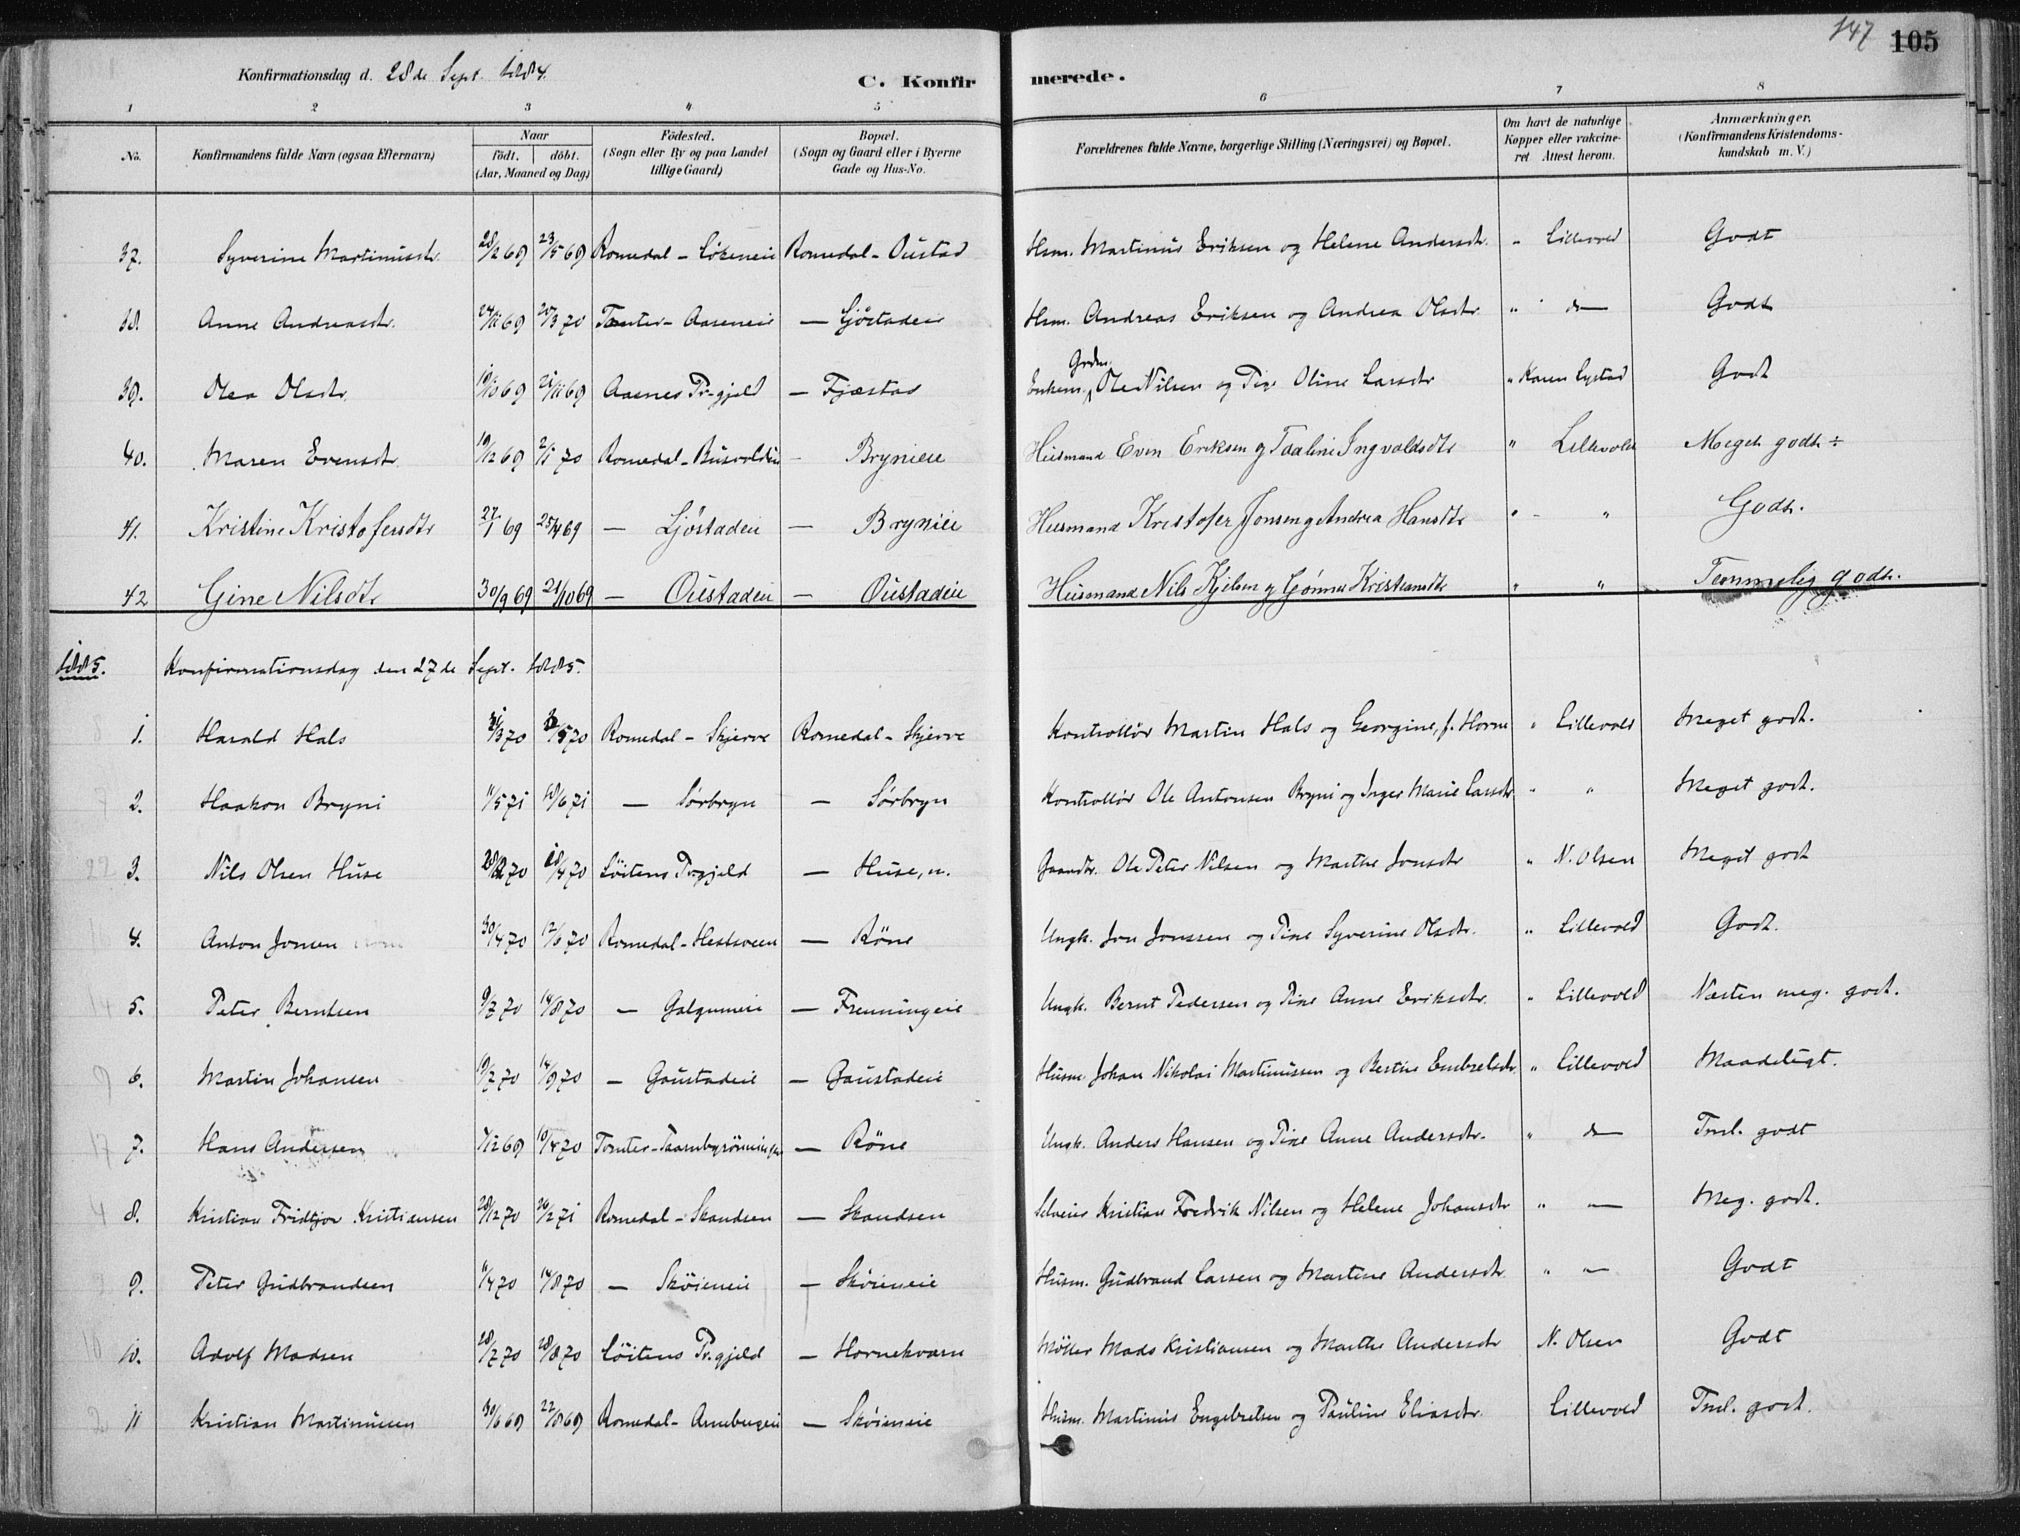 147 105
Konfirmationsdag d. 28de Sept. 1884. C. Konfirmerede.
1 2 3 4 5 6 7 8
No. Konfirmandens fulde Navn (ogsaa Efternavn) Naar födt. döbt. (Aar, Maaned og Dag) Födested. (Sogn eller By og paa Landet tillige Gaard) Bopæl. (Sogn og Gaard eller i Byerne Gade og Hus-No. Forældrenes fulde Navne, borgerlige Stilling (Næringsvei) og Bopæl. Om havt de naturlige Kopper eller vakcineret Attest herom. Anmærkninger. (Konfirmandens Kristendomskundskab m. V.)
37. Syverine Martinusdtr. 28/2 69 23/5 69 Romedal - Løkeneie Romedal - Oustad Hsm. Martinus Eriksen og Helene Andersdtr. " Lillevold Godt
38. Anne Andreasdtr. 24/11 69 20/3 70 Tomter - Aaseneie — Ljöstadeie Hsm. Andreas Eriksen og Andrea Olsdtr. " do Godt
39. Olea Olsdtr. 19/10 69 21/11 69 Aasnes Pr-gjeld — Fjæstad Enkem. Grdm. Ole Nilsen og Pige Oline Larsdtr " Karen Lystad Godt
40. Maren Evensdtr. 19/12 69 2/1 70 Romedal - Busvoldeie - Brynieie Husmand Even Eriksen og Paaline Ingvaldsdtr " Lillevold Meget godt ÷
41. Kristine Kristofersdtr 27/1 69 25/4 69 — Ljöstadeie — Brynieie Husmand Kristofer Jonsen og Andrea Hansdtr " - " Godt.
42 Gine Nilsdtr 30/9 69 21/10 69 — Oustadeie — Oustadeie Husmand Nils Kjelsen og Gønner Kristiansdtr " " Temmelig godt.
1885. Konfirmationsdag den 27de Sept. 1885.
1. Harald Hals 31/3 70 /5 70 Romedal - Skjerve Romedal - Skjerve Kontrollör Martin Hals og Georgine, f. Horne " Lillevold Meget godt.
2. Haakon Bryni 11/5 71 18/6 71 — Sörbryn — Sörbryn Kontrollör Ole Antonsen Bryni og Inger Marie Larsdtr " " Meget godt.
3. Nils Olsen Huse 28/2 70 18/4 70 Löitens Pr.gjeld — Huse, n. Gaardbr. Ole Peter Nilsen og Marthe Jonsdtr " N. Olsen Meget godt
4. Anton Jonsen 30/4 70 12/6 70 Romedal - Hestsveen — Röne Ungk. Jon Jonssen og Pige Syverine Olsdtr. " Lillevold Godt.
5. Peter Berntsen 9/7 70 14/8 70 — Galgumeie — Frenningeie Ungk. Bernt Pedersen og Pige Anne Eriksdtr. " Lillevold Næsten meg. godt.
6. Martin Johansen 19/7 70 14/9 70 — Gaustadeie — Gaustadeie Husm. Johan Nikolai Martinussen og Bertine Embretsdtr. " Lillevold Maadeligt.
7. Hans Andersen 7/12 69 10/4 70 Tomter - — Röne Ungk. Anders Hansen og Pige Anne Andersdtr. " do Tml. godt
8. Kristian Fridtjov Kristiansen 28/12 70 26/2 71 Romedal - Skandsen — Skandsen Selveier Kristian Fredrik Nilsen og Helene Johansdtr " — Meg. godt.
9. Peter Gudbrandsen 11/4 70 14/8 70 — Sköieneie — Sköieneie Husm. Gudbrand Larsen og Martine Andersdtr " — Godt
10. Adolf Madsen 28/7 70 28/8 70 Löitens Pr.gjeld — Hornekværn Möller Mads Kristiansen og Marthe Andersdtr N. Olsen Godt
11 Kristian Martinussen 30/6 69 22/8 69 Romedal - Arnebergeie — Sköieneie Husm. Martinus Engebretsen og Pauline Eliasdtr. Lillevold Tml. godt.